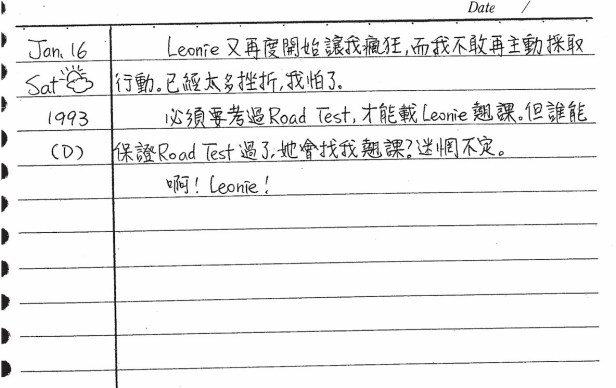 Date /
Jan. 16
Leonie 又再度開始讓我瘋狂,而我不敢再主動採取
Sat
行動。已經太多挫折,我怕了。
1993
必須要考過Road Test,才能載Leonie翹課。但誰能
(D)
保證Road Test過了,她會找我翹課?迷惘不定。
啊! Leonie!